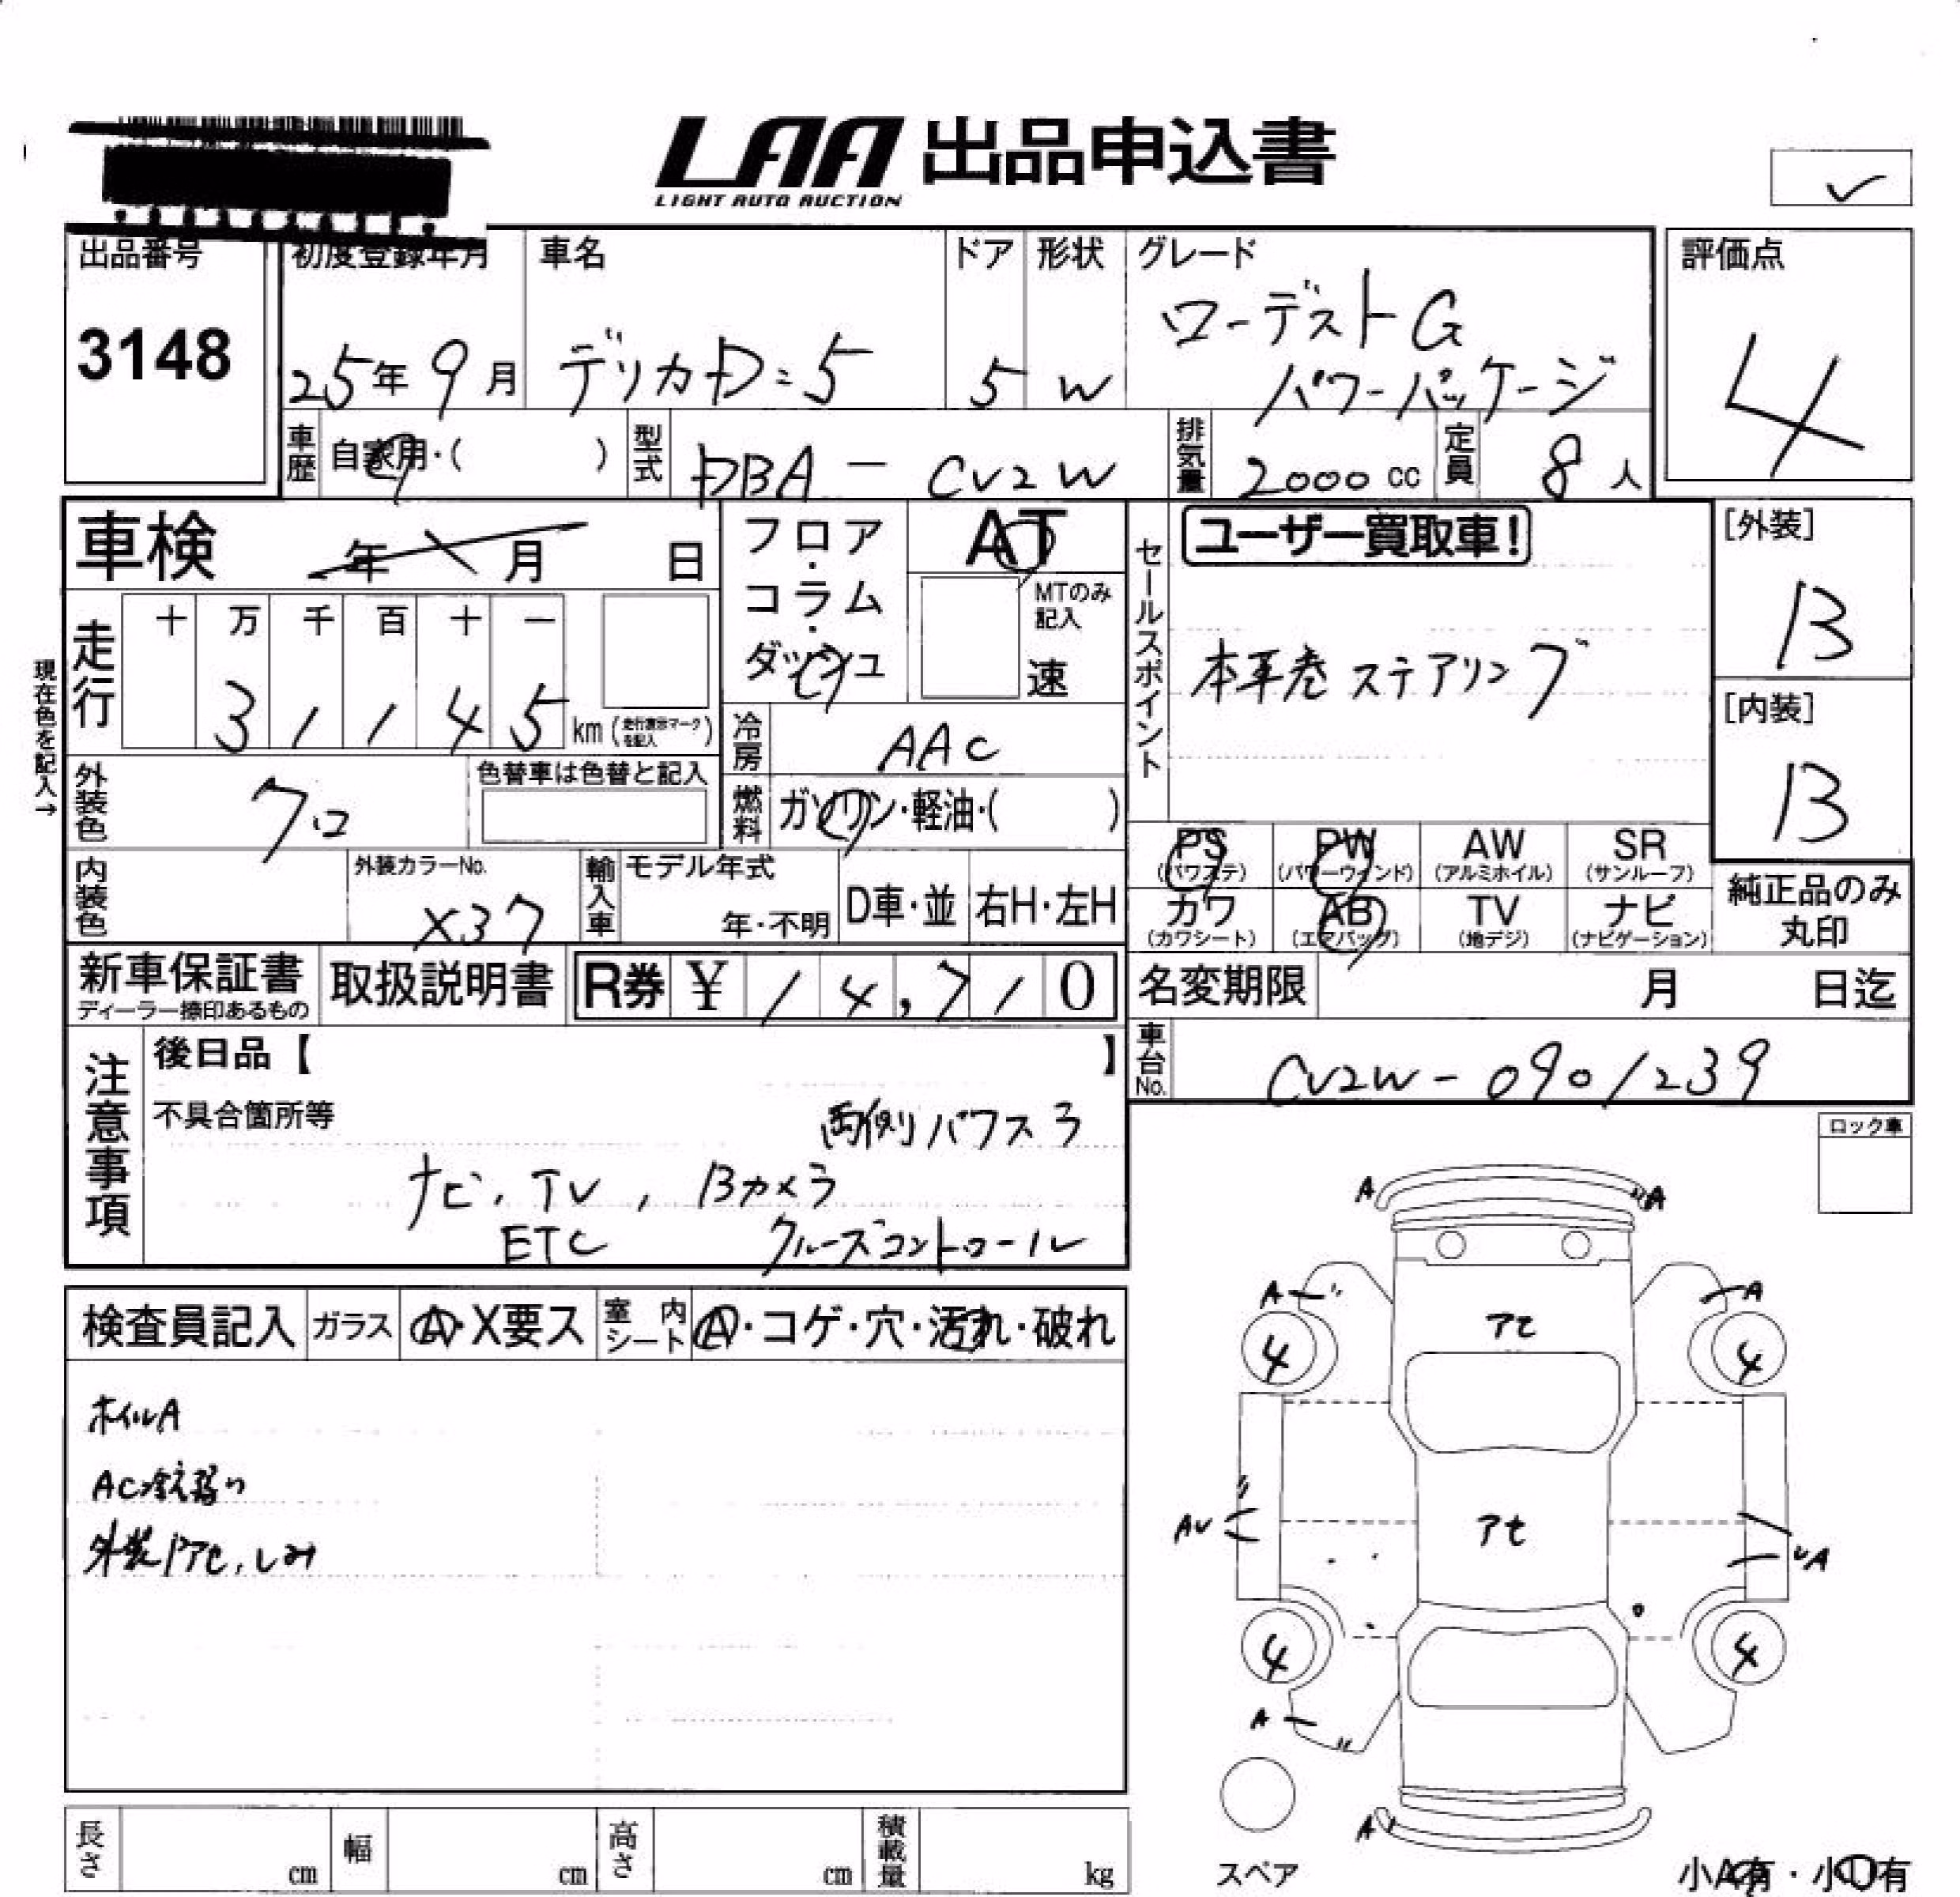 LAA 出品申込書
LIGHT AUTO AUCTION
出品番号
3148
初度登録年月
25年9月
車名
デリカD:5
ドア
5
形状
W
グレード
ローデストG
パワーパッケージ
評価点
4
車歴
自家用・( )
型式
DBA-CV2W
排気量
2000cc
定員
8人
車検
年 月 日
フロア・コラム・ダッシュ
AT
MTのみ記入
速
セールスポイント
ユーザー買取車!
本革巻ステアリング
[外装]
B
[内装]
B
現在色を記入→
走行
十 万 千 百 十 一
3 1 1 4 5
km(走行表示マークを記入)
冷房
AAC
外装色
クロ
色替車は色替と記入
燃料
ガソリン・軽油・( )
PS
(パワステ)
PW
(パワーウィンド)
AW
(アルミホイル)
SR
(サンルーフ)
カワ
(カワシート)
AB
(エアバッグ)
TV
(地デジ)
ナビ
(ナビゲーション)
純正品のみ
丸印
内装色
外装カラーNo.
X37
輸入車
モデル年式
年・不明
D車・並
右H・左H
新車保証書
ディーラー捺印あるもの
取扱説明書
R券 ¥ 14,710
名変期限
月 日迄
車台No.
CV2W-0901239
注意事項
後日品【 】
不具合箇所等
両側パワスラ
ナビ、TV、Bカメラ
ETC クルーズコントロール
ロック車
検査員記入
ガラス
A・X要ス
室内シート
A・コゲ・穴・汚れ・破れ
ホイルA
AC冷え弱り
外装アセ、しみ
A
A
A
A
アセ
4
4
アセ
AU
UA
4
4
A
A
スペア
長さ
cm
幅
cm
高さ
cm
積載量
kg
小A有・小U有